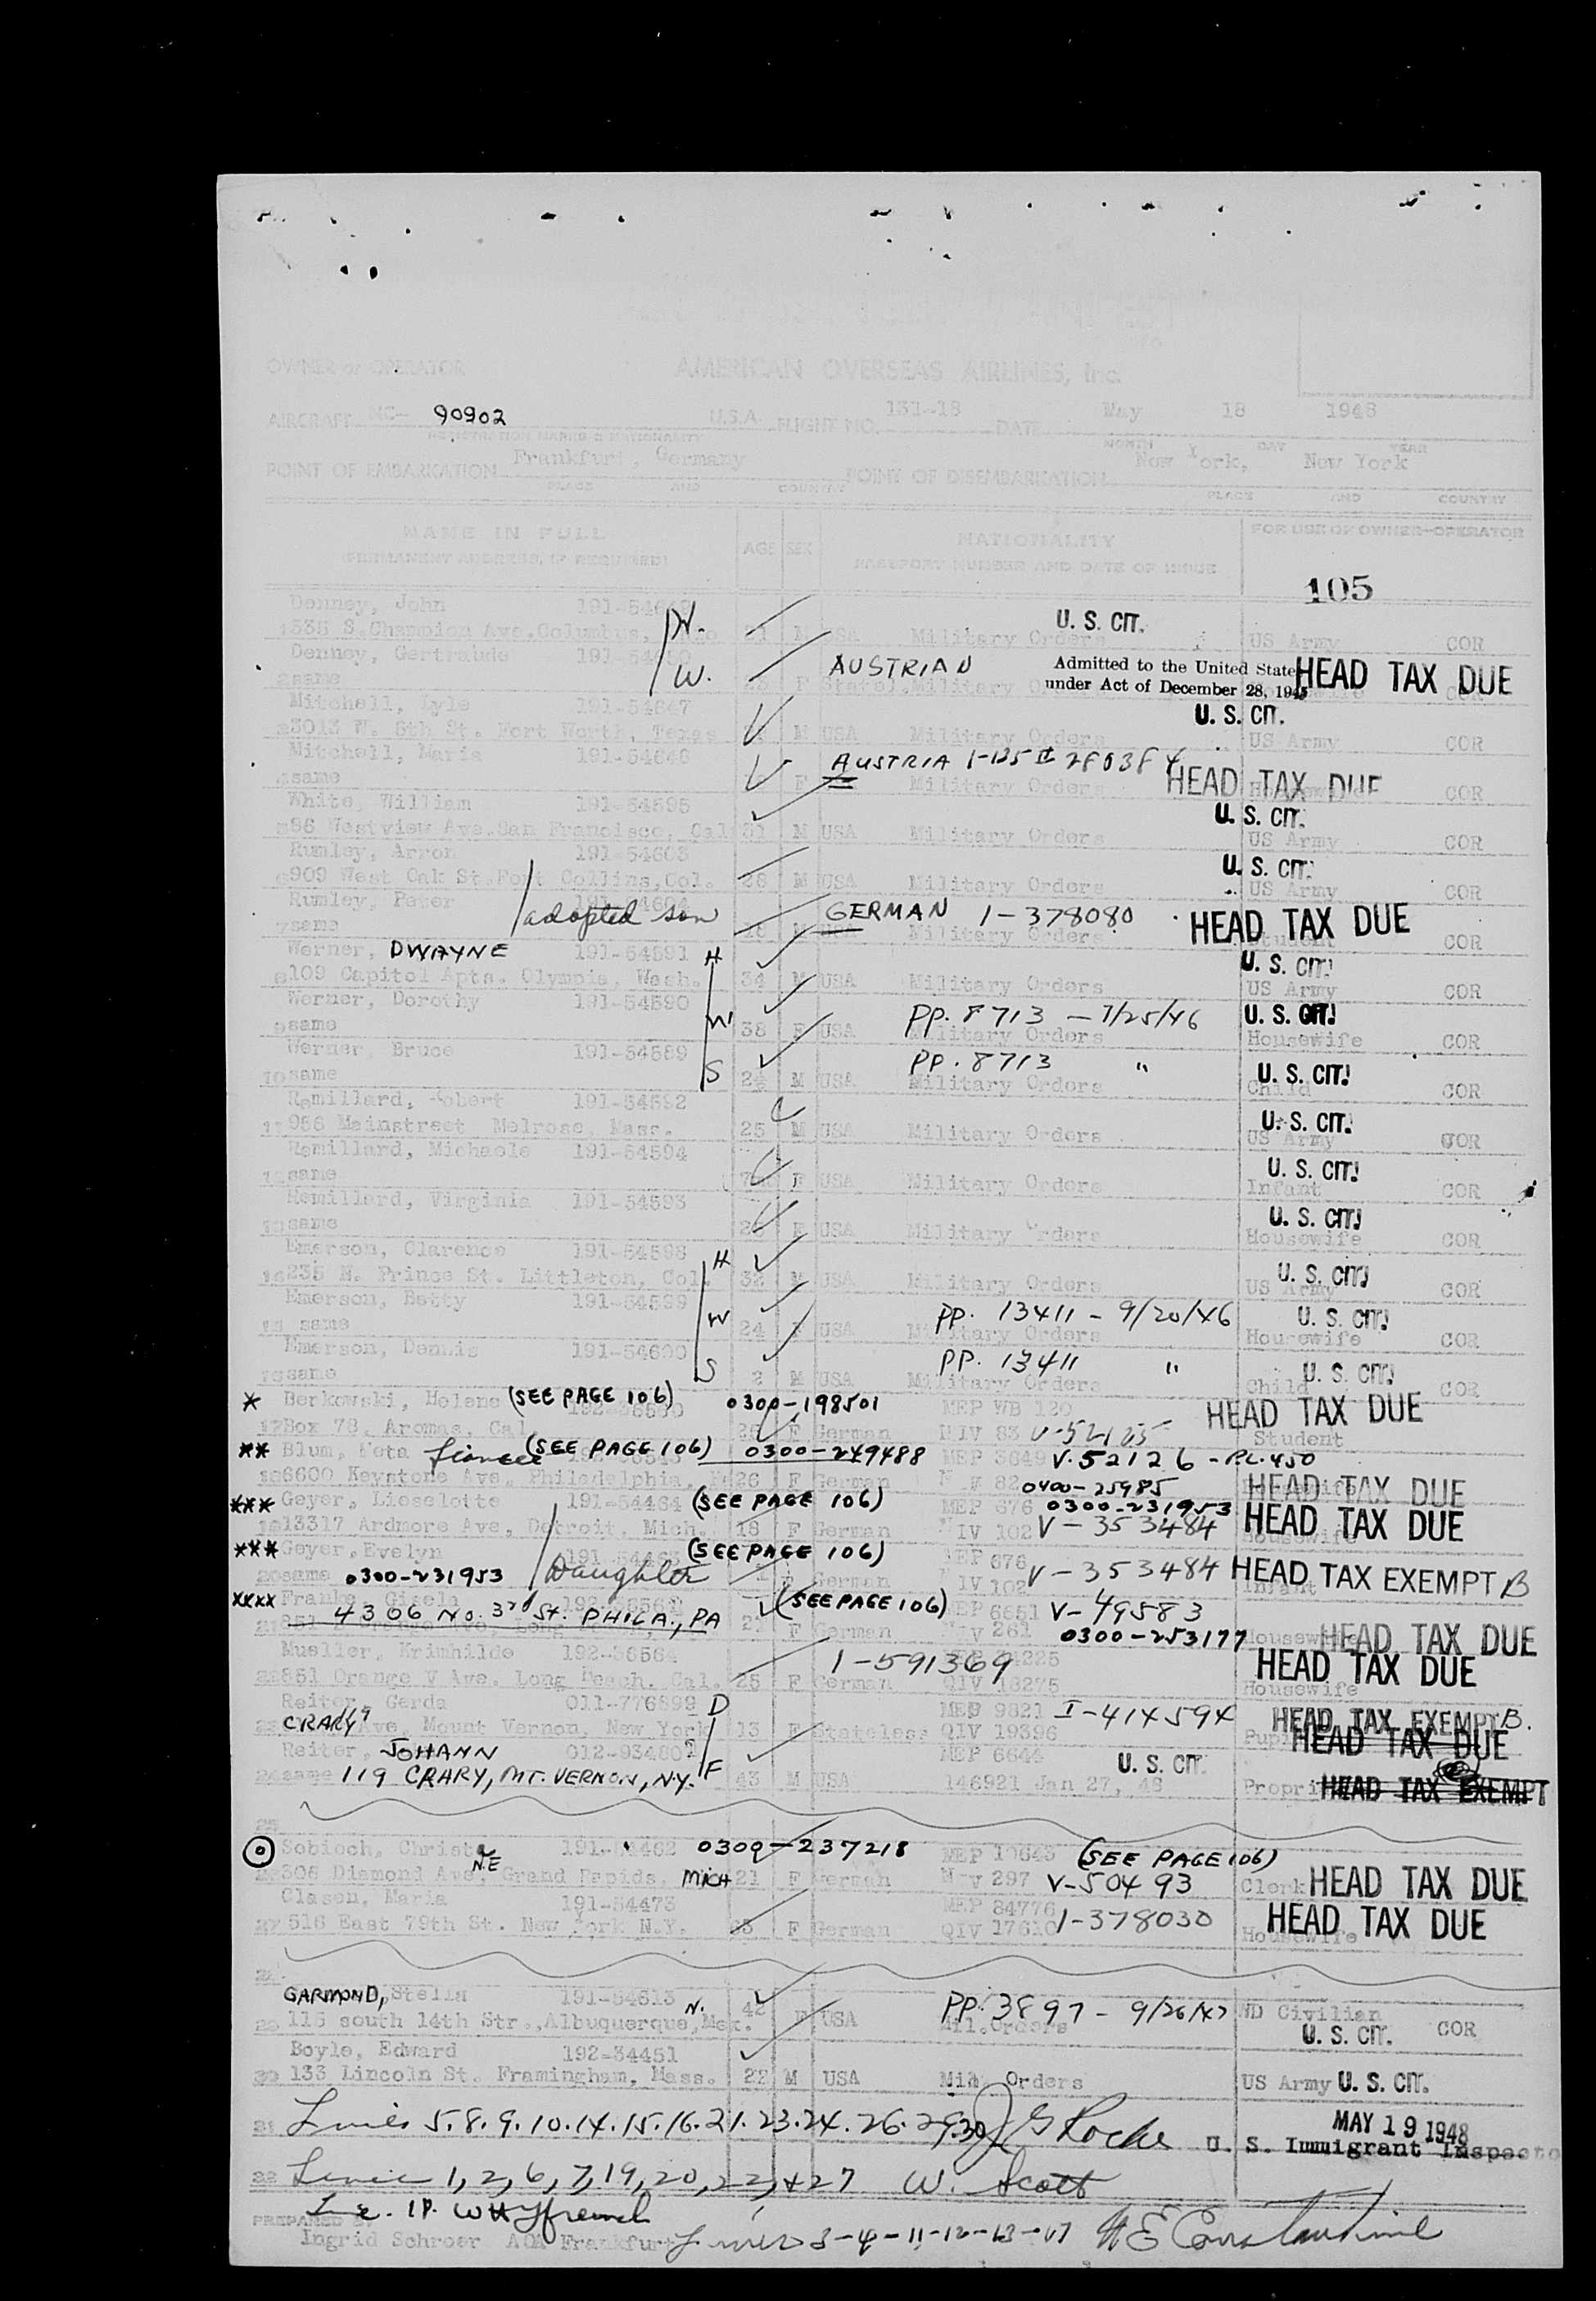 OWNER or OPERATOR AMERICAN OVERSEAS AIRLINES, Inc.
AIRCRAFT NC- 90902 U.S.A. FLIGHT NO. 131-18 DATE May 18 1948
REGISTRATION MARKS & NATIONALITY MONTH DAY YEAR
POINT OF EMBARKATION Frankfurt, Germany POINT OF DISEMBARKATION New York, New York
PLACE AND COUNTRY PLACE AND COUNTRY
NAME IN FULL AGE SEX NATIONALITY FOR USE OF OWNER-OPERATOR
(PERMANENT ADDRESS, IF REQUIRED) PASSPORT NUMBER AND DATE OF ISSUE
105
Denney, John H. U. S. CIT.
1 335 S.Champion Ave.Columbus, 21 M USA Military Orders US Army COR
Denney, Gertraude W. AUSTRIAN Admitted to the United States HEAD TAX DUE
2 same F Military under Act of December 28, 1945 COR
Mitchell, Lyle 191-54647 U. S. CIT.
3 3013 W. 8th St. Fort Worth, Texas M USA Military Orders US Army COR
Mitchell, Maria 191-54648 AUSTRIA HEAD TAX DUE
4 same F Military Orders COR
White, William 191-54595 U. S. CIT.
5 86 Westview Ave.San Francisco, Cal 31 M USA Military Orders US Army COR
Rumley, Arron 191-54603 U. S. CIT.
6 909 West Oak St.Fort Collins,Col. 28 M USA Military Orders US Army COR
Rumley, Peter adopted son GERMAN 1-378080 HEAD TAX DUE
7 same 18 M USA Military Orders Student COR
Werner, DWAYNE 191-54591 H U. S. CIT.
8 109 Capitol Apts. Olympia, Wash. 34 M USA Military Orders US Army COR
Werner, Dorothy 191-54590 W PP. 8713 - 7/25/46 U. S. CIT.
9 same 38 F USA Military Orders Housewife COR
Werner, Bruce 191-54589 S PP. 8713 " U. S. CIT.
10 same 2½ M USA Military Orders Child COR
Remillard, Robert 191-54592 U. S. CIT.
11 956 Mainstreet Melrose, Mass. 25 M USA Military Orders US Army COR
Remillard, Michaele 191-54594 U. S. CIT.
12 same F USA Military Orders Infant COR
Remillard, Virginia 191-54593 U. S. CIT.
13 same F USA Military Orders Housewife COR
Emerson, Clarence 191-54598 H U. S. CIT.
14 235 N. Prince St. Littleton, Col. 32 M USA Military Orders US Army COR
Emerson, Betty 191-54599 W PP. 13411 - 9/20/46 U. S. CIT.
15 same 24 F USA Military Orders Housewife COR
Emerson, Dennis 191-54600 S PP. 13411 " U. S. CIT.
16 same 2 M USA Military Orders Child COR
* Berkowski, Helene (SEE PAGE 106) 0300-198501 MEP WB 120 HEAD TAX DUE
17 Box 78, Aromas, Cal F German NIV 83 Student
** Blum, Meta fiancee (SEE PAGE 106) 0300-249488 MEP 3649 V-52126 - P.L. 450
18 6600 Keystone Ave, Philadelphia, 26 F German 82 0400-25985 HEAD TAX DUE
*** Geyer, Lieselotte 191-54464 (SEE PAGE 106) MEP 676 0300-231953
19 13317 Ardmore Ave, Detroit, Mich. 18 F German NIV 102 V-353484 HEAD TAX DUE
*** Geyer, Evelyn (SEE PAGE 106) MEP 676
20 same 0300-231953 Daughter F German NIV 102 V-353484 HEAD TAX EXEMPT B
**** Franke, Gisela (SEE PAGE 106) MEP 6651 V-49583
21 4306 No. 3rd St. PHILA., PA F German 261 0300-253177 Housewife HEAD TAX DUE
Mueller, Krimhilde 192-36564 1-591369 HEAD TAX DUE
22 851 Orange V Ave. Long Beach, Cal. 25 F German QIV 18275 Housewife
Reiter, Gerda 011-776899 D MEP 9821 I-414594 HEAD TAX EXEMPT B.
23 119 CRARY Ave, Mount Vernon, New York 13 F Stateless QIV 19396 HEAD TAX DUE
Reiter, JOHANN F MEP 6644 U. S. CIT.
24 same 119 CRARY, MT. VERNON, N.Y. 43 M USA 146921 Jan 27, 48 HEAD TAX EXEMPT
25
Sobioch, Christ 0300-237218 MEP 10643 (SEE PAGE 106)
306 Diamond Ave, N.E Grand Rapids, MICH 21 F German 297 V-50493 Clerk HEAD TAX DUE
Clasen, Maria 191-54473 MEP 84776
27 516 East 79th St. New York N.Y. 63 F German QIV 17610 1-378030 Housewife HEAD TAX DUE
28
GARMOND, Stella 191-54613 42 PP. 3897 - 9/26/47 WD Civilian
29 115 south 14th Str.,Albuquerque, N. Mex. F USA Mil.Orders U. S. CIT. COR
Boyle, Edward 192-34451
30 133 Lincoln St. Framingham, Mass. 22 M USA Mil. Orders US Army U. S. CIT.
31 Lines 5.8.9.10.14.15.16.21.23.24.26.29.30 J G Roche MAY 19 1948
U. S. Immigrant Inspector
32 Lines 1, 2, 6, 7, 19, 20, 22, + 27 W. Scott
PREPARED
Ingrid Schroer AOA Frankfurt Lines 3-4-11-12-13-17 H E Constantine